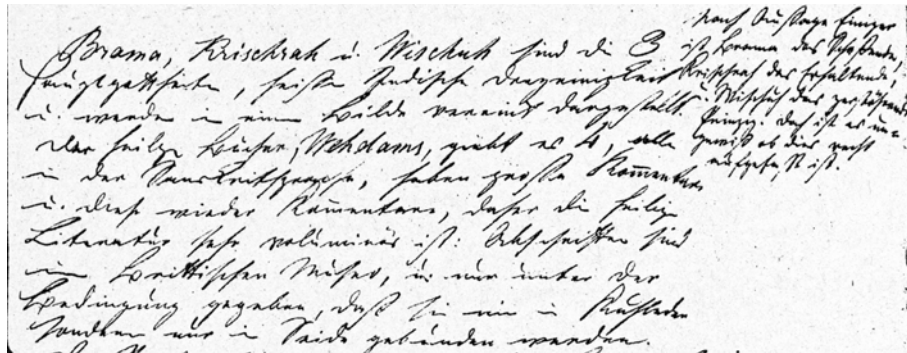 Brama, Krischnah u. Wischnuh sind die 3
Hauptgottheiten, heißen Indische Dreyeinigkeit
u. werden in einem Bilde vereint dargestellt.
Der heilgn Bücher, Wehdams, giebt es 4, alle
in der Sanskritsprache, haben große Kommentare
u. diese wieder Kommentare, daher die heilige
Literatur sehr voluminös ist: Abschriften sind
im Brittischen Museo, u. nur unter der
Bedingung gegeben, daß sie nie in Kuhleder
sondern nur in Seide gebunden werden.
Nach Aussage Einiger
ist Brama das Schaffende,
Krischnah das Erhaltende
u. Wischnuh das zerstöhrende
Prinzip. Doch ist es un=
gewiß ob dies recht
ist.